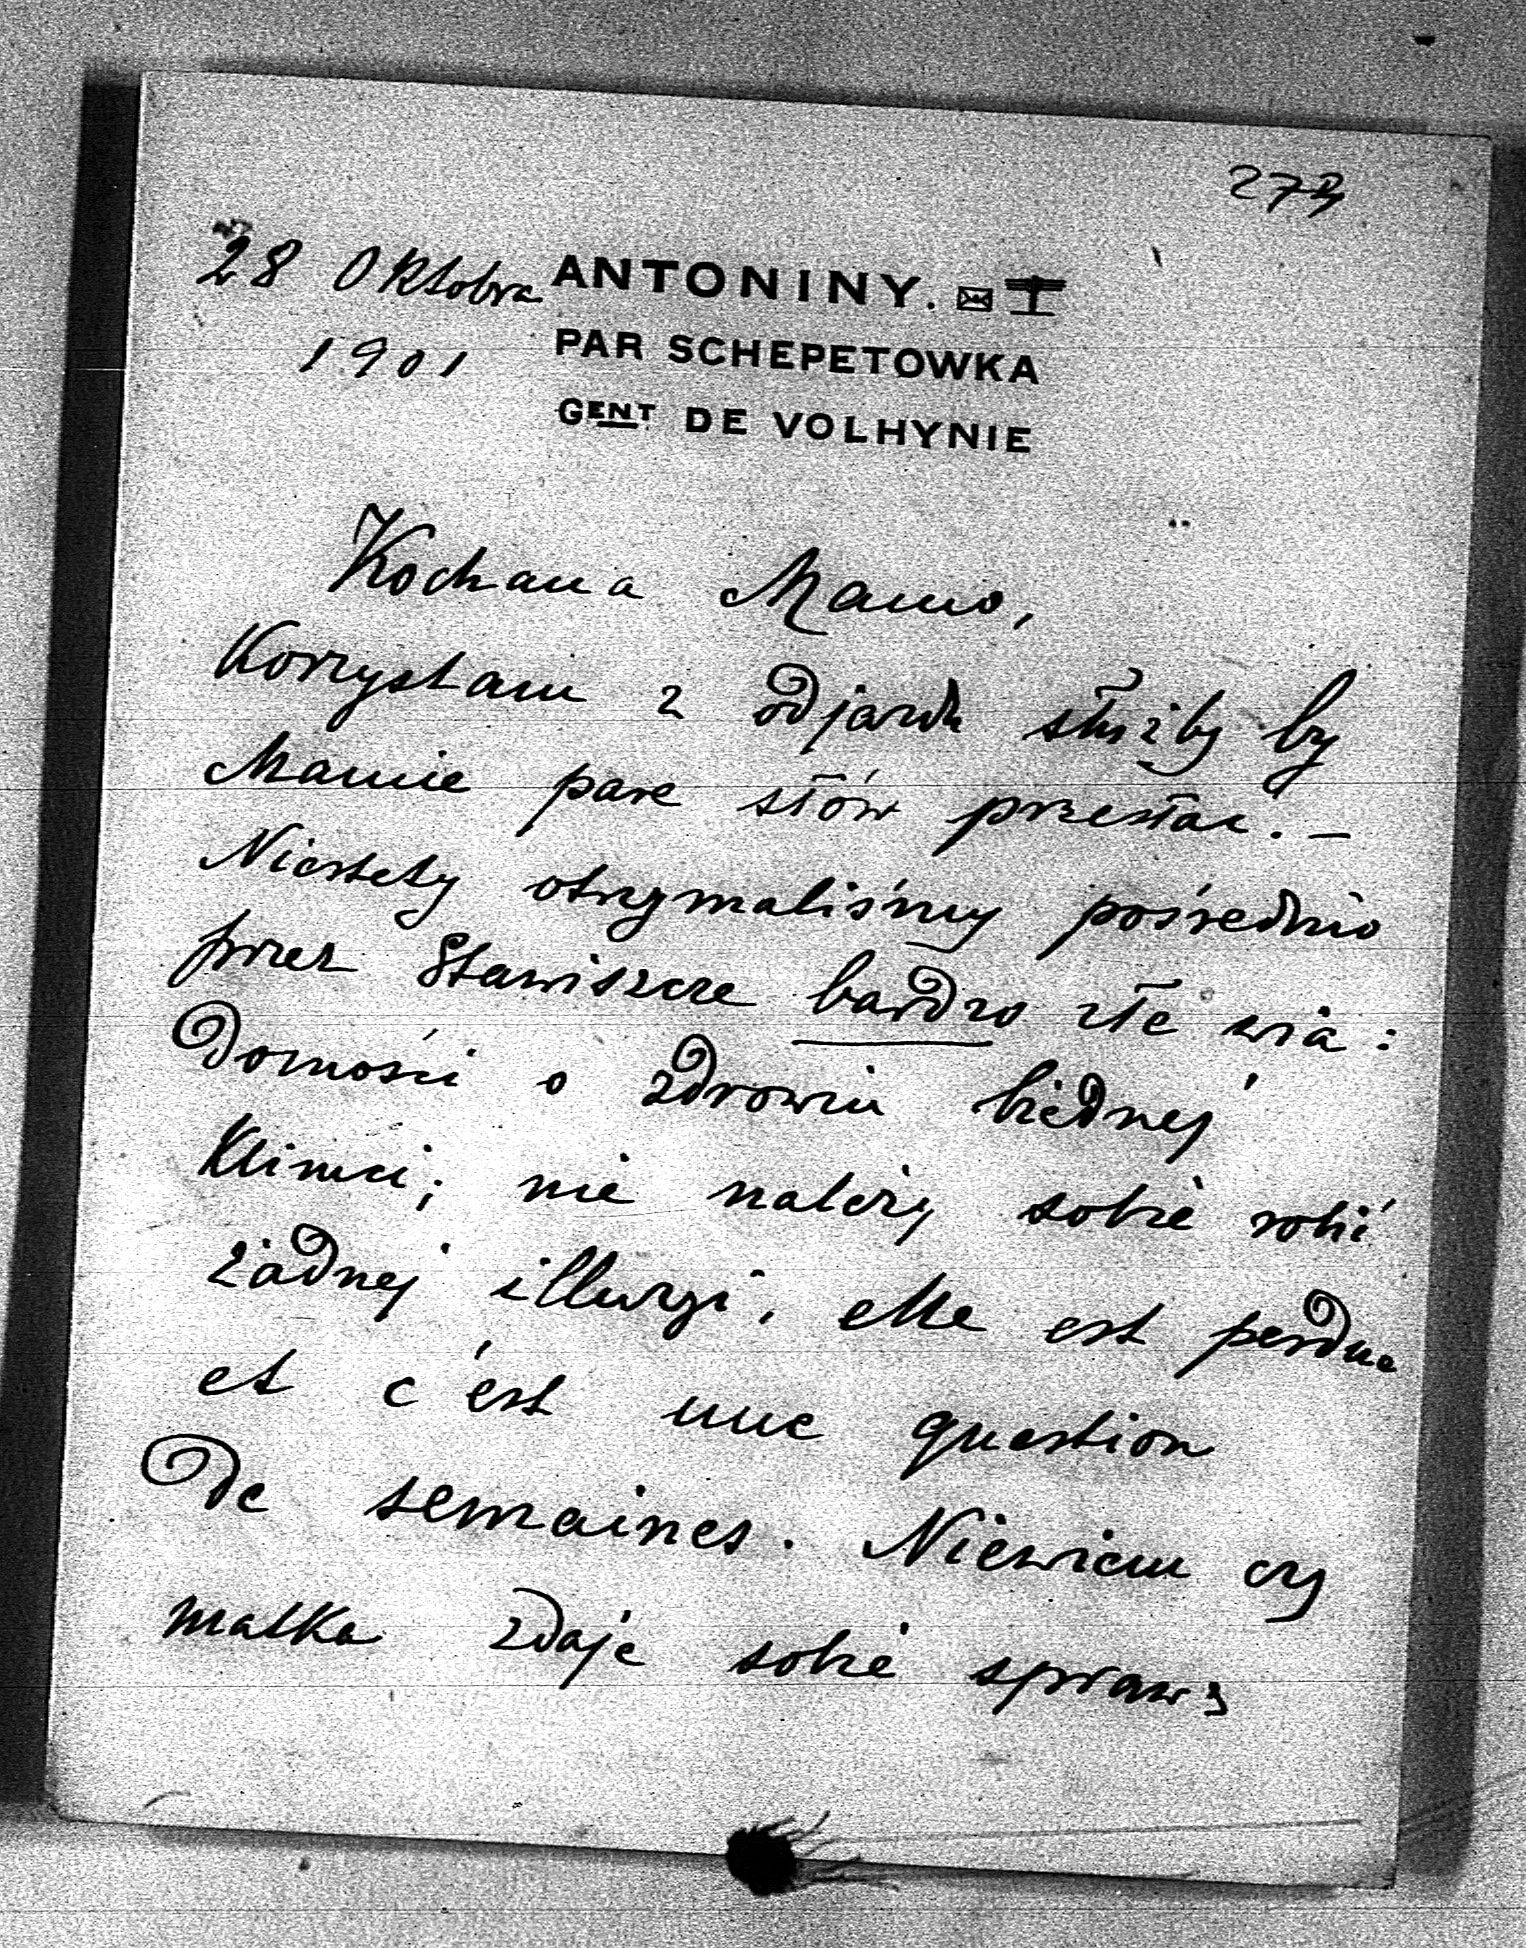 28 Oktobra
1901
ANTONINY.
PAR SCHEPETOWKA
GENT DE VOLHYNIE
Kochana Mamo,
Korzystam z odjazdu służby by
Mamie pare słów przesłać. —
Niestety otrzymaliśmy pośrednio
przez Stawiszcze bardzo złe wia:
domości o zdrowiu biednej
Klimci; nie należy sobie robić
żadnej illuzyi, elle est perdue
et c'est une question
de semaines. Niewiem czy
matka zdaje sobie sprawę